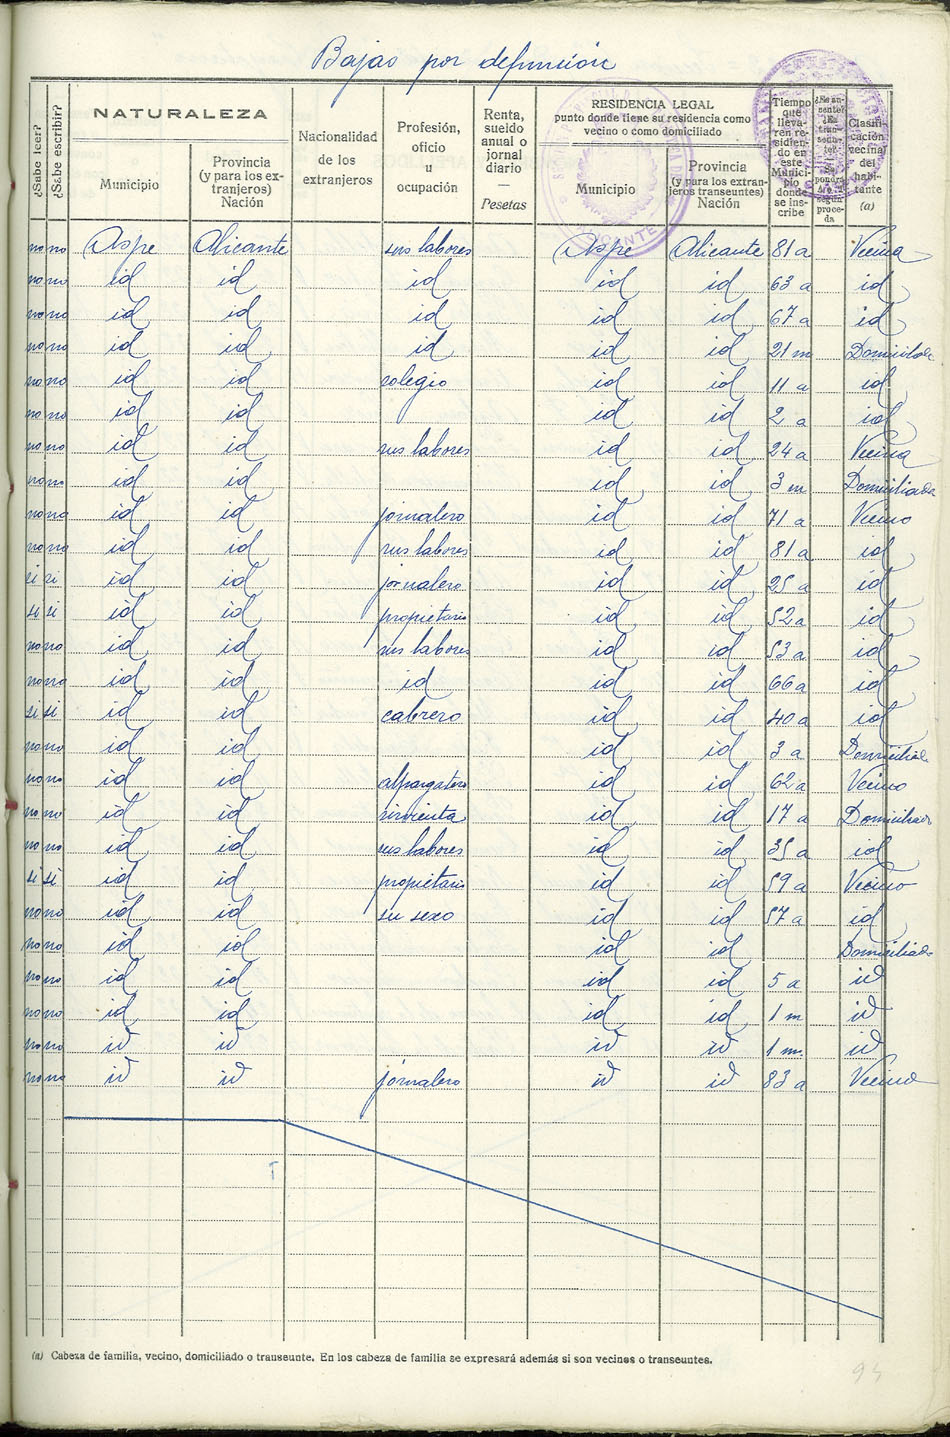 Bajas por defunción
¿Sabe leer? ¿Sabe escribir? NATURALEZA Nacionalidad de los extranjeros Profesión, oficio u ocupación Renta, sueldo anual o jornal diario — Pesetas RESIDENCIA LEGAL punto donde tiene su residencia como vecino o como domiciliado Tiempo que lleva- ren re- sidien- do en este Munici- pio donde se ins- cribe Clasifi- cación vecinal del habi- tante (a)
Municipio Provincia (y para los ex- tranjeros) Nación Municipio Provincia (y para los extran- jeros transeuntes) Nación
no no Aspe Alicante sus labores Aspe Alicante 81 a Vecina
no no id id id id id 63 a id
no no id id id id id 67 a id
no no id id id id id 21 m Domiciliada
no no id id colegio id id 11 a id
no no id id id id 2 a id
no no id id sus labores id id 24 a Vecina
no no id id id id 3 m Domiciliada
no no id id jornalero id id 71 a Vecino
no no id id sus labores id id 81 a id
si si id id jornalero id id 25 a id
si si id id propietario id id 52 a id
no no id id sus labores id id 53 a id
no no id id id id id 66 a id
si si id id cabrero id id 40 a id
no no id id id id 3 a Domiciliad
no no id id alpargatero id id 62 a Vecino
no no id id sirvienta id id 17 a Domiciliada
no no id id sus labores id id 35 a id
si si id id propietario id id 59 a Vecino
no no id id su sexo id id 57 a id
no no id id id id Domiciliado
no no id id id id 5 a id
no no id id id id 1 m id
no no id id id id 1 m id
no no id id jornalero id id 83 a Vecino
(a) Cabeza de familia, vecino, domiciliado o transeunte. En los cabeza de familia se expresará además si son vecinos o transeuntes.
94